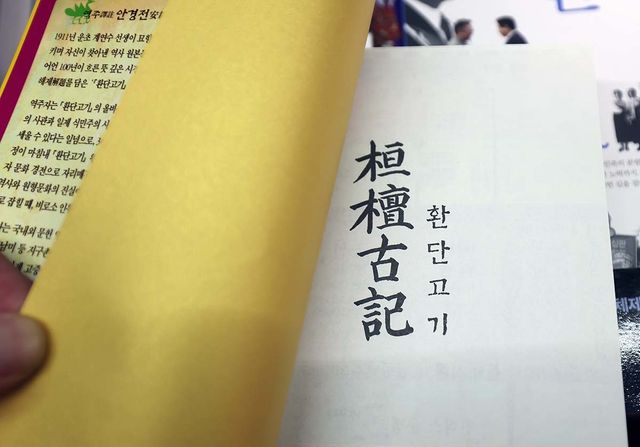 역주譯註 안경전安
1911년 운초 계연수 선생이 묘향
키며 자신이 찾아낸 역사 원본
어언 100년이 흐른 뜻 깊은
해제解題를 담은 『환단고기
역주자는 『환단고기』의 올바
의 사관과 일제 식민주의 사
세울 수 있다는 일념으로,
정이 마침내 『환단고기』
자 문화 경전으로 자리매
역사와 원형문화의 진실
로 잠길 때, 비로소
는 국내외 문헌
남미 등 지구촌
桓檀古記
환단고기
체제